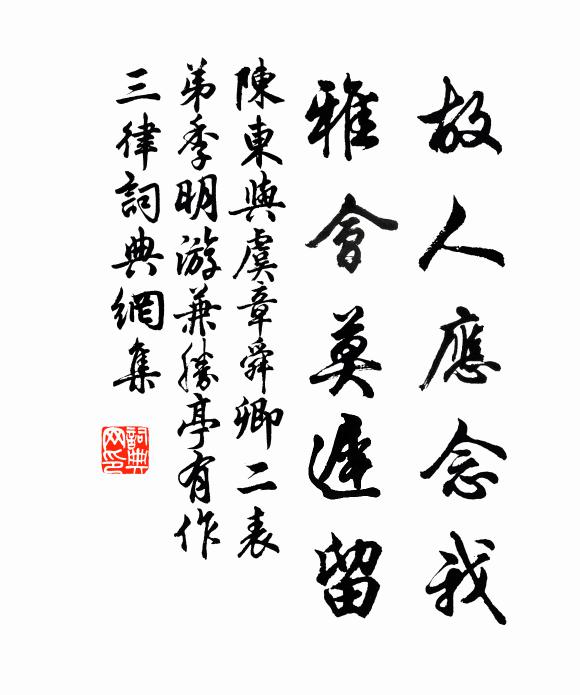 故人應念我
雅會莫遲留
陳東與虞章舜卿二表
弟季明游兼勝亭有作
三律詞典網集
詞典
网印